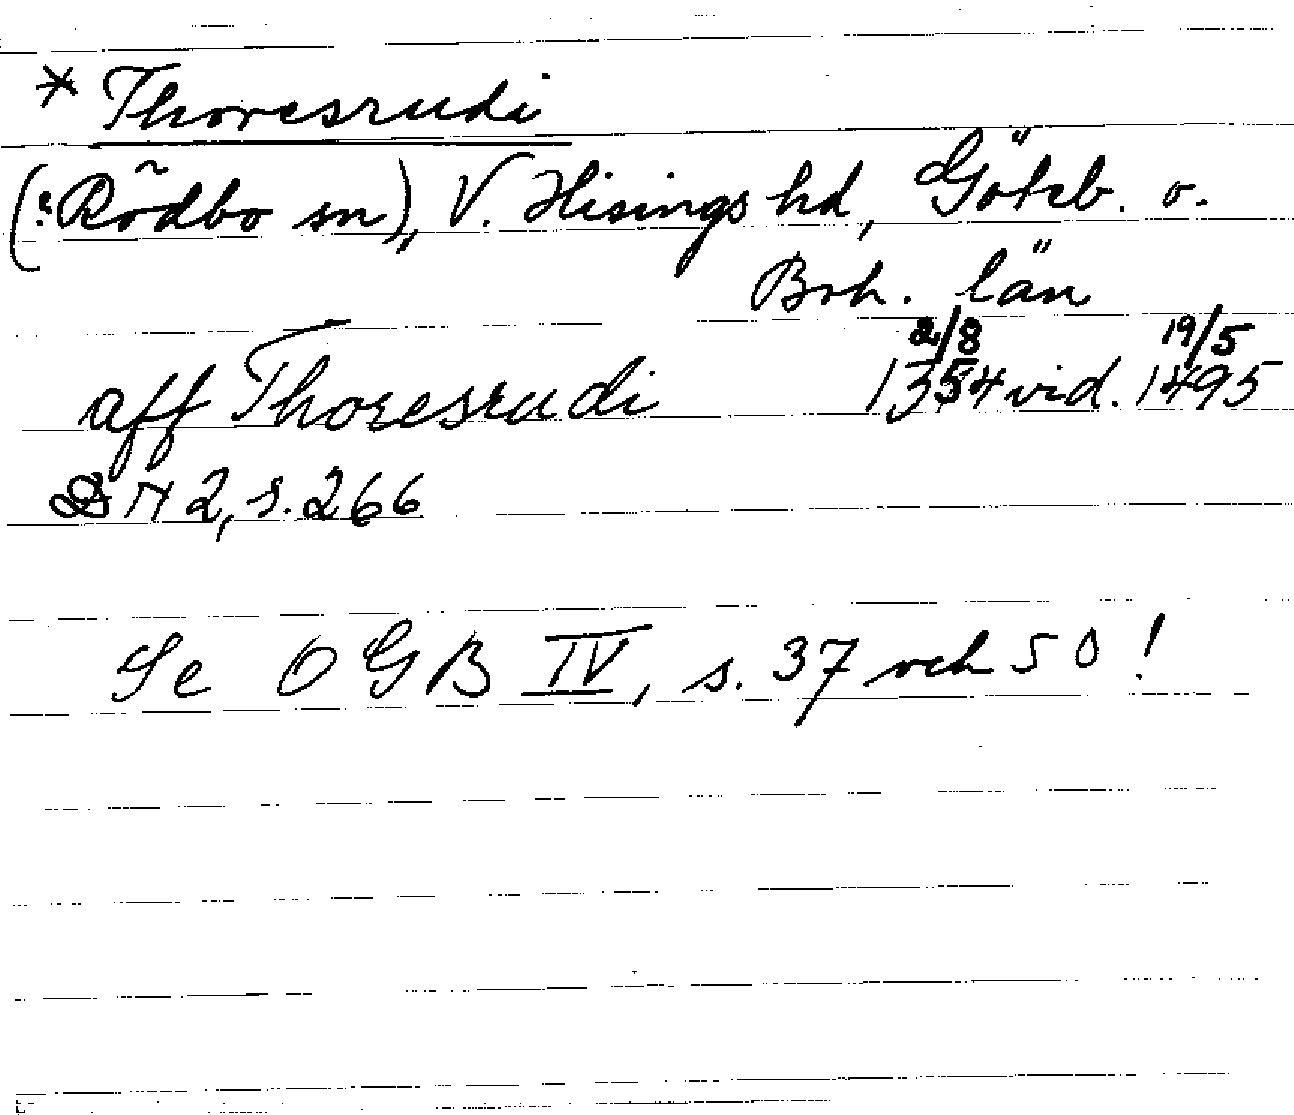 * Thoresrudi
(: Rödbo sn), V. Hisings hd, Göteb. o.
Boh. län
2/8 19/5
aff Thoresrudi 1354 vid. 1495
DN 2, s. 266
Se OGB IV, s. 37 och 50!